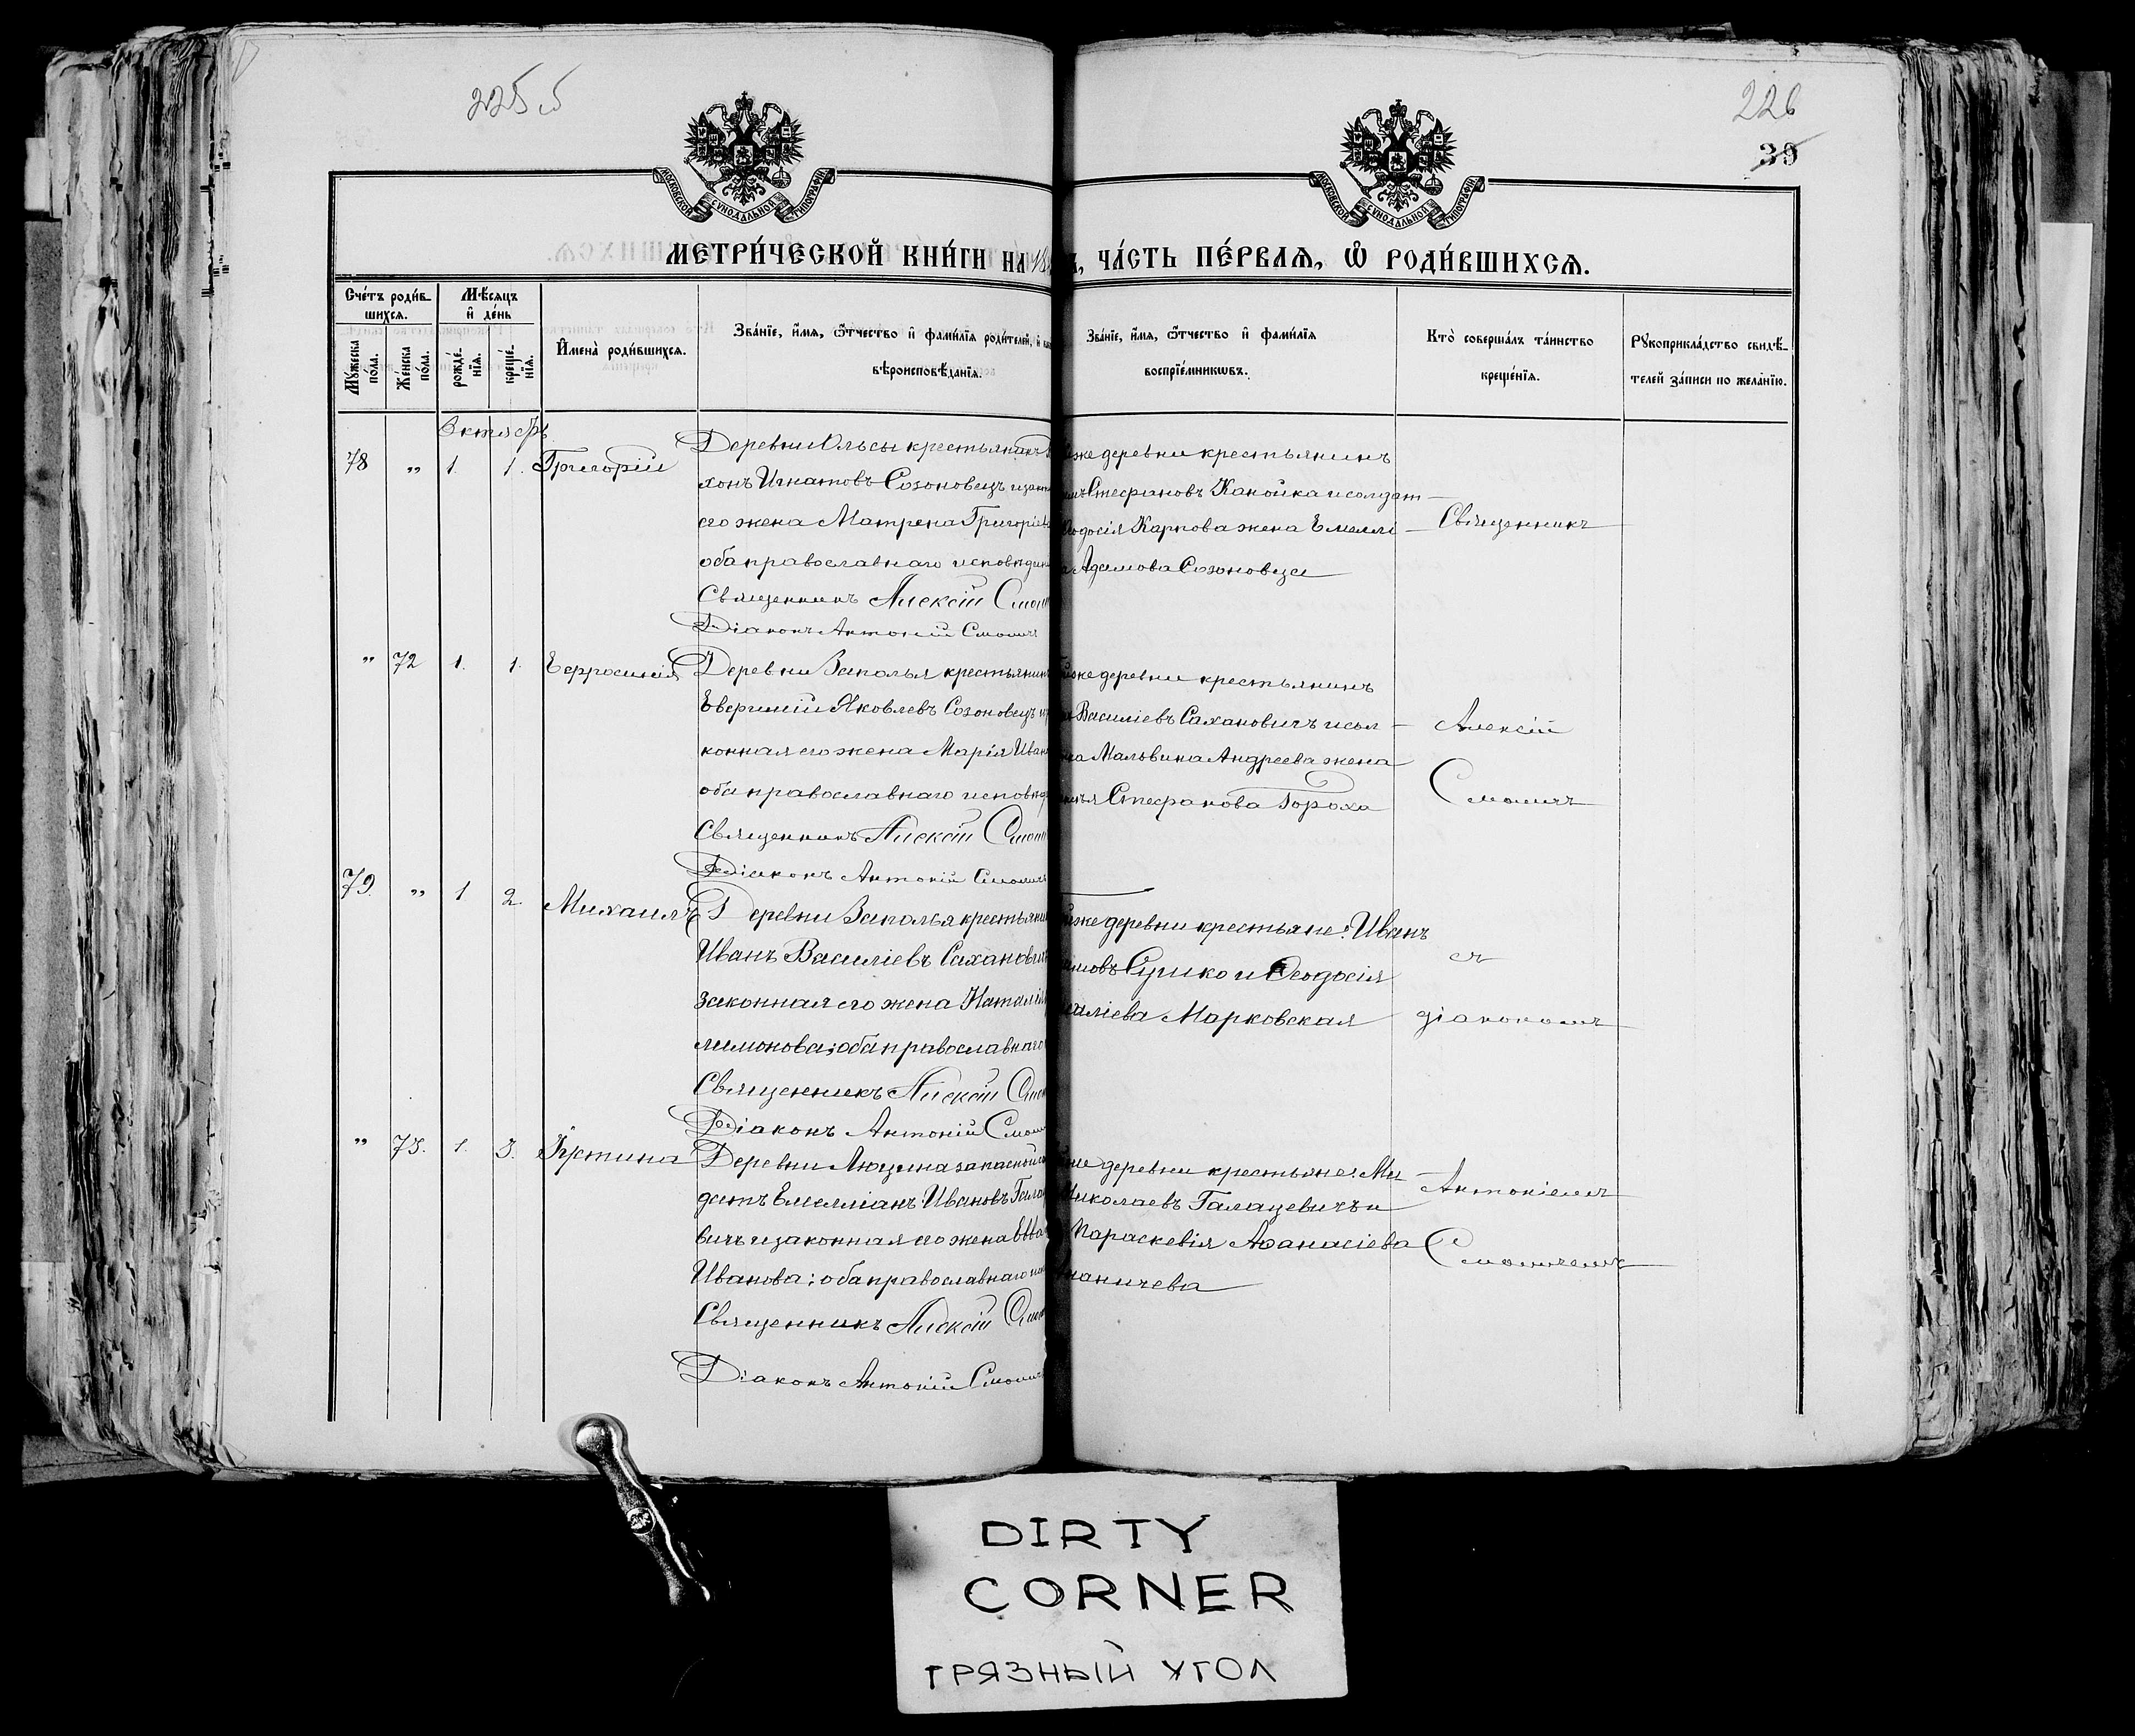 225 об
226
39
МОСКОВСКОЙ СУНОДАЛЬНОЙ ТИПОГРАФІИ
МОСКОВСКОЙ СУНОДАЛЬНОЙ ТИПОГРАФІИ
МЕТРИ́ЧЕСКОЙ КНИ́ГИ НА 18
ЧА́СТЬ ПЕ́РВАѦ, Ѽ РОДИ́ВШИХСѦ.
Сче́тъ роди́в-
шихсѧ.
Мѣ́сѧцъ
и҆ де́нь
Мꙋ́жеска
по́ла.
Же́нска
по́ла.
рожде́-
нїѧ.
креще́-
нїѧ.
И҆мена̀ роди́вшихсѧ.
Зва́нїе, и҆́мѧ, ѻ҆́тчество и҆ фами́лїѧ роди́телей, и҆
вѣроисповѣ́данїѧ.
Зва́нїе, и҆́мѧ, ѻ҆́тчество и҆ фами́лїѧ
воспрїе́мникѡвъ.
Кто̀ соверша́лъ та́инство
креще́нїѧ.
Рꙋкоприкла́дство свидѣ́-
телей за́писи по жела́нїю.
Октябрь
78 " 1. 1. Григорій
Деревни Ольсы крестьянинъ
хонъ Игнатовъ Созоновецъ и зако
его жена Матрена Григоріе
оба православнаго исповѣдан
Священникъ Алексій Смол
Діаконъ Антоній Смолич
же деревни крестьянинъ
Стефановъ Канойка и солдат-
одосія Карпова жена Емелі-
Адамова Созоновца
Священникъ
" 72 1. 1. Евфросинія
Деревни Заполья крестьянинъ
Евфимій Яковлевъ Созоновецъ и
конная его жена Марія Иван
оба православнаго исповѣд
Священникъ Алексій Смол
Діаконъ Антоній Смоличъ
же деревни крестьянинъ
Василіевъ Сахановичъ и сол-
Мальвина Андреева жена
Стефанова Гороха
Алексій
Смоличъ
79. " 1 2. Михаилъ
Деревни Заполья крестьяни
Иванъ Василіевъ Саханович
законная его жена Наталія
лимонова; оба православнаго
Священникъ Алексій Смол
Діаконъ Антоній Смол
же деревни крестьяне: Иванъ
Сушко и Ѳеодосія
Марковская
съ
діакономъ
" 73. 1. 3. Іустина
Деревни Лющина запасной
датъ Емелліанъ Ивановъ Гала
вичъ и законная его жена Евва
Иванова; оба православнаго
Священникъ Алексій Смол
Діаконъ Антоній Смолич
же деревни крестьяне: Ми-
Николаевъ Галацевичъ и
Параскевія Аѳанасіева
аничева
Антоніемъ
Смоличемъ
DIRTY
CORNER
ГРЯЗНЫЙ УГОЛ